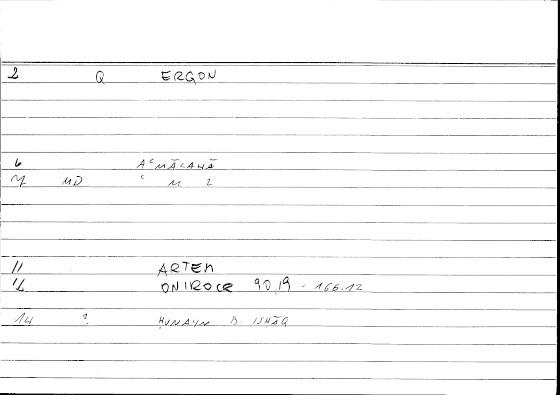 2 Q ERGON
6 AʿMĀLAHĀ
7 MD ʿ M L
11 ARTEM
12 ONIROCR 90,19 - 166.12
14 ? ḤUNAYN B. ISḤĀQ